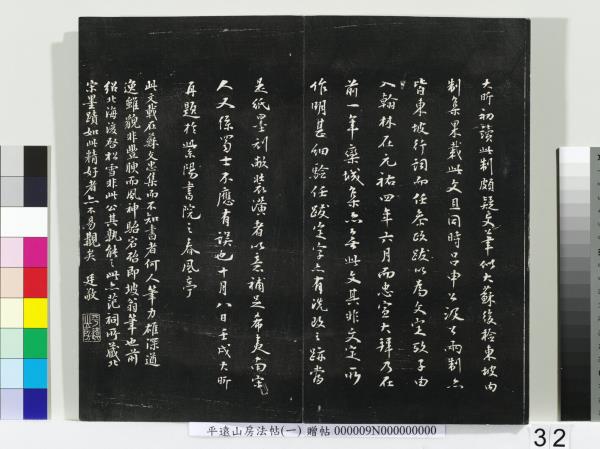 大昕初讀此制頗疑文筆似大蘇後檢東坡內
制集果載此文且同時呂申公汲公兩制亦
皆東坡行詞而任希夷跋以為文定攷子由
入翰林在元祐四年六月而忠宣大拜乃在
前一年欒城集亦無此文其非文定所
作明甚細驗任跋定字亦有洗改之跡當
是紙墨刓敝裝潢者以意補足希夷南宋
人又係蜀士不應有誤也十月八日壬戌大昕
再題於紫陽書院之春風亭
此文載在蘇文忠集而不知書者何人筆力雄深道
逸雖貌非豐腴而風神駘宕殆即坡翁筆也前
紹北海後啓松雪非此公其孰能之此亦范祠所藏北
宋墨蹟如此精好者亦不易觀矣 廷敬
平遠山房法帖(一) 贈帖 000009N000000000
32